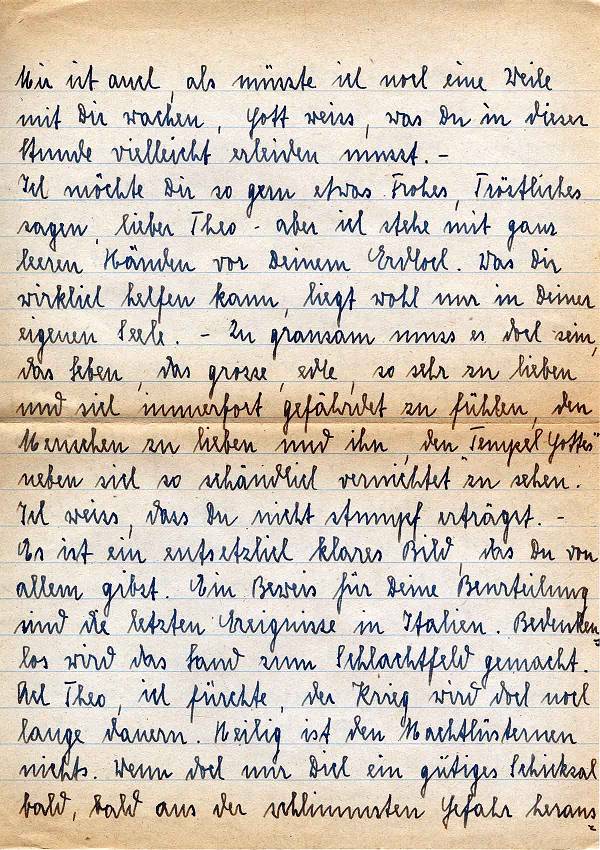 Mir ist auch, als müsste ich noch eine Weile
mit Dir wachen, Gott weiss, was Du in dieser
Stunde vielleicht erleiden musst. -
Ich möchte Dir so gern etwas Frohes, Tröstliches
sagen, lieber Theo - aber ich stehe mit ganz
leeren Händen vor Deinem Erdloch. Was Dir
wirklich helfen kann, liegt wohl nur in Deiner
eigenen Seele. - Zu grausam muss es doch sein,
das Leben, das grosse, edle, so sehr zu lieben
und sich immerfort gefährdet zu fühlen, den
Menschen zu lieben und ihn, den "Tempel Gottes"
neben sich so schändlich vernichtet zu sehen.
Ich weiss, dass Du nicht stumpf erträgst. -
Es ist ein entsetzlich klares Bild, das Du von
allem gibst. Ein Beweis für Deine Beurteilung
sind die letzten Ereignisse in Italien. Bedenken-
los wird das Land zum Schlachtfeld gemacht.
Ach Theo, ich fürchte, der Krieg wird doch noch
lange dauern. Heilig ist den Machtlüsternen
nichts. Wenn doch nur Dich ein gütiges Schicksal
bald, bald aus der schlimmsten Gefahr heraus-